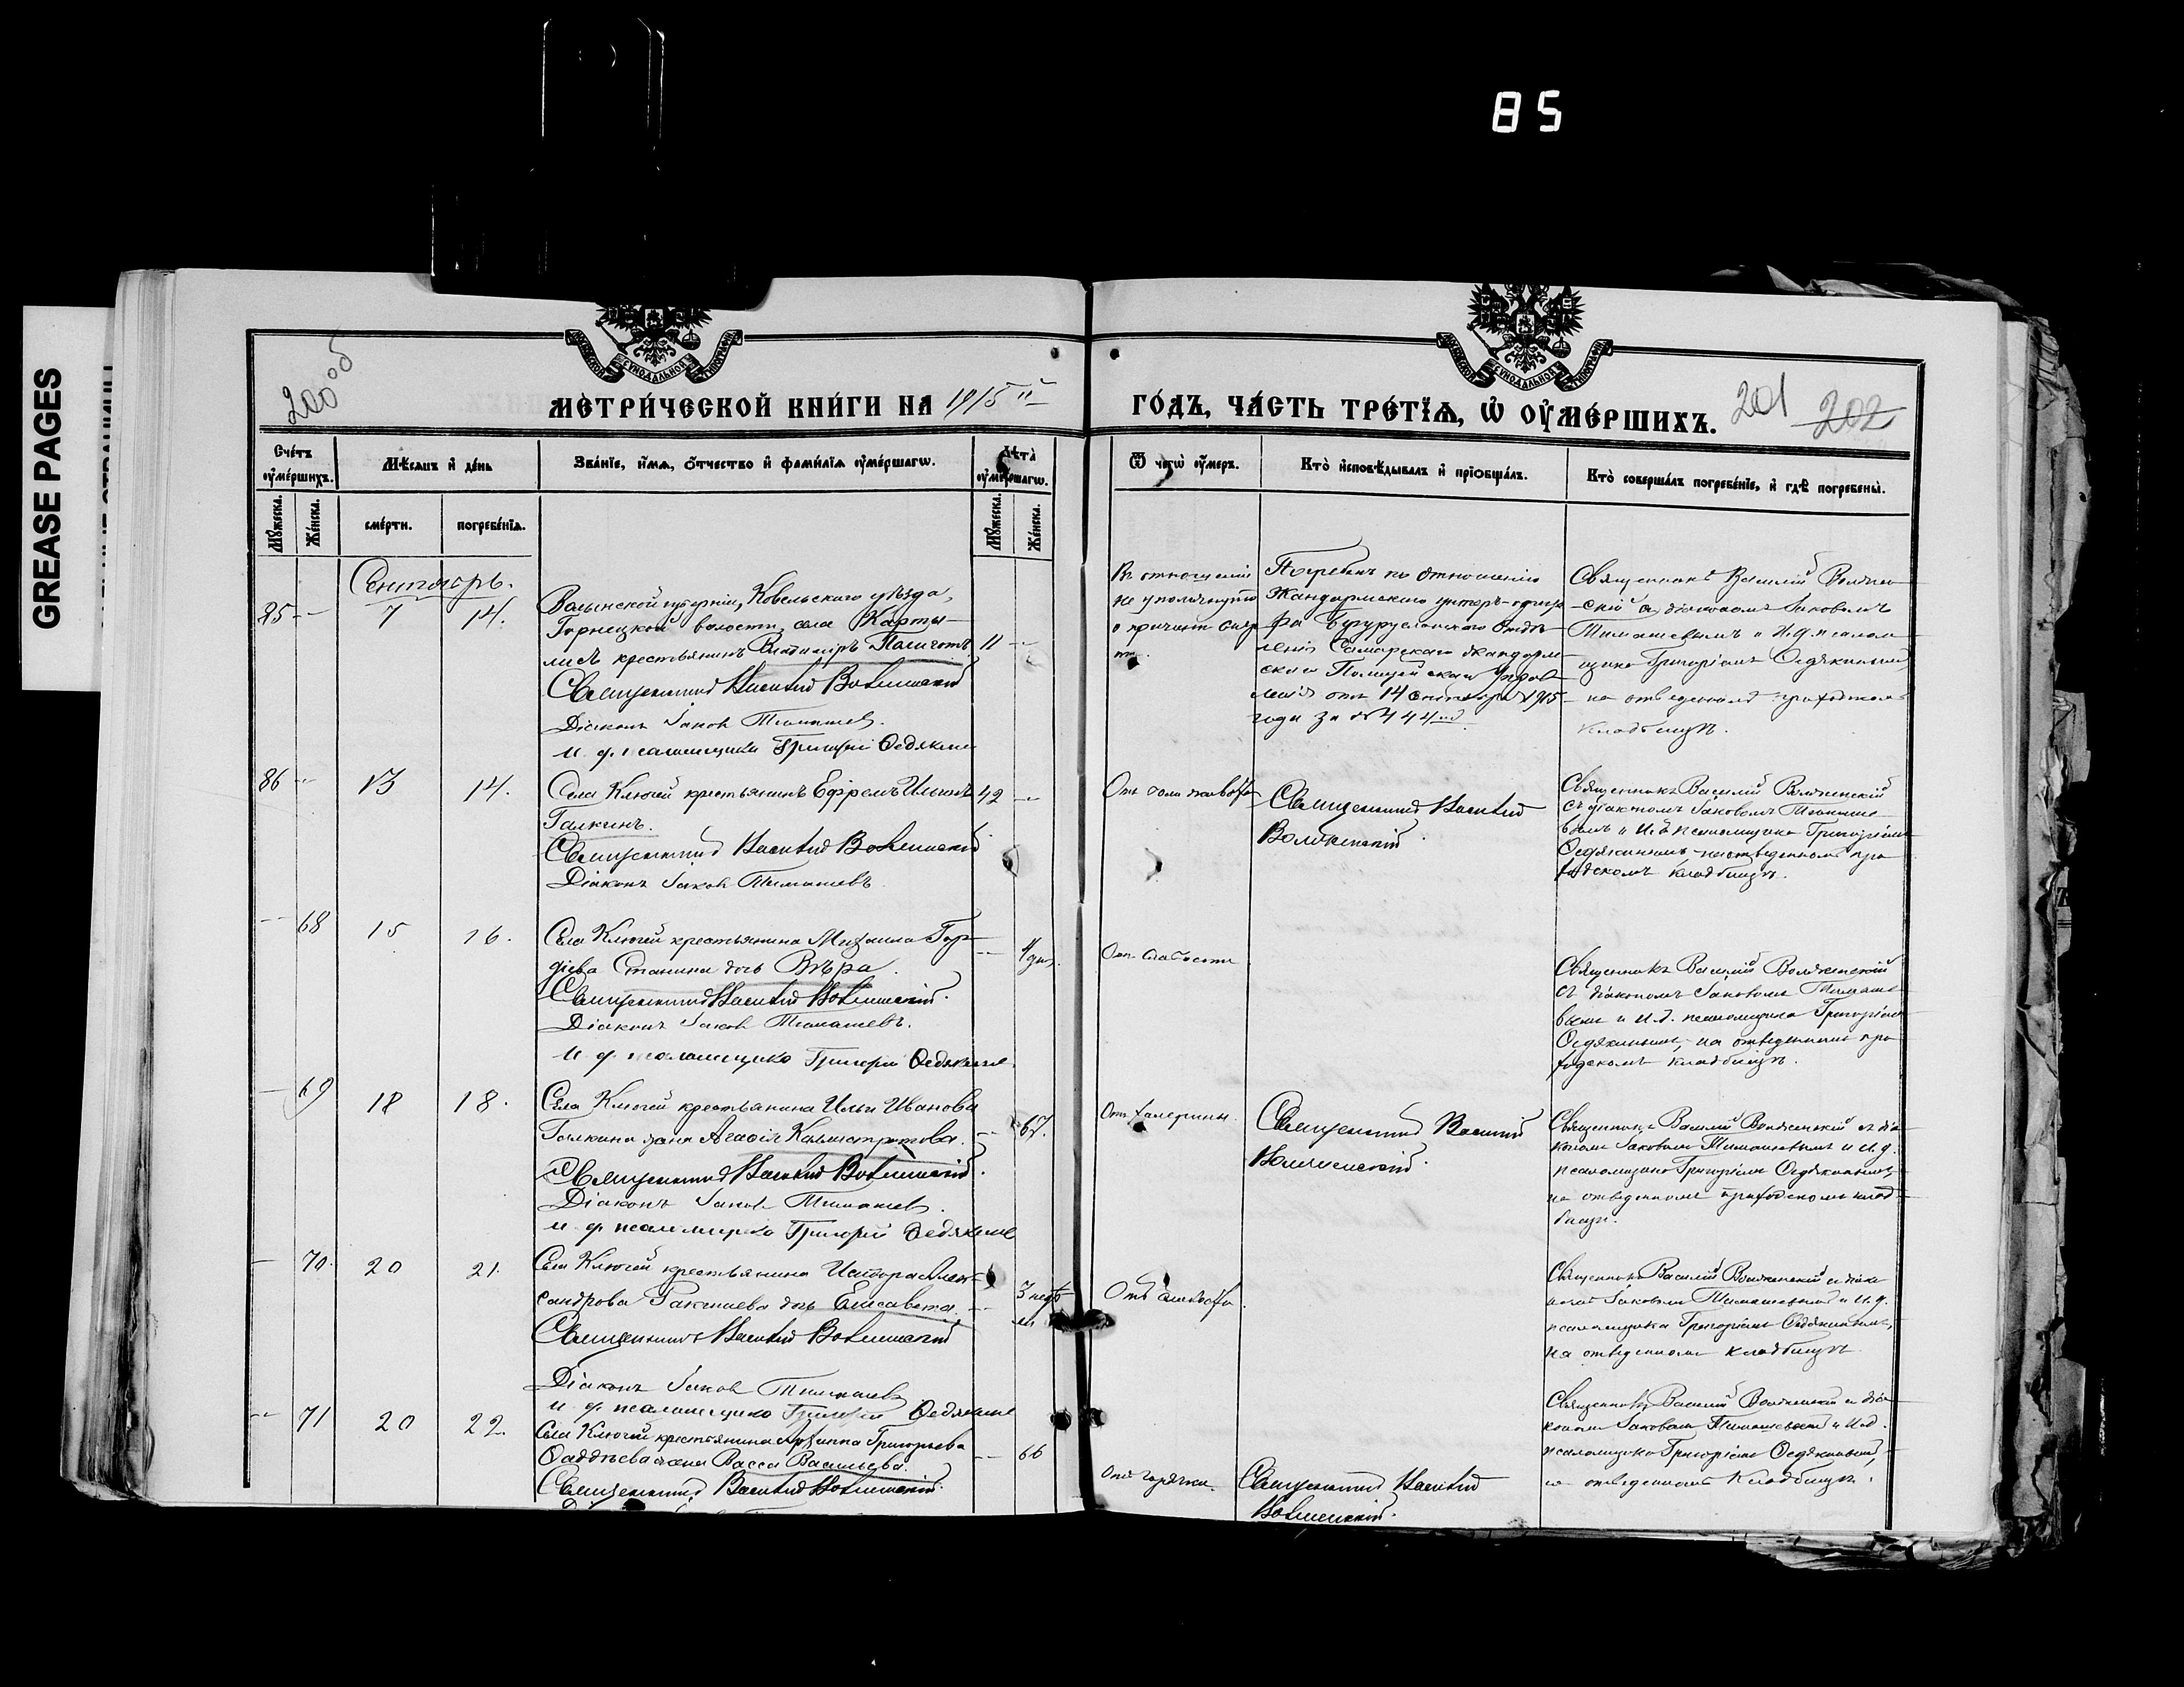 85
GREASE PAGES
200 об
МЕТРИ́ЧЕСКОЙ КНИ́ГИ НА 1915 й
ГО́ДЪ, ЧА́СТЬ ТРЕ́ТЇѦ, Ѡ҆ ОУ҆МЕ́РШИХЪ.
201
202
Сче́тъ оу҆ме́ршихъ.
Мѣсѧцъ и҆ де́нь
Зва́нїе, и҆́мѧ, ѻ҆́тчество и҆ фами́лїѧ оу҆ме́ршагѡ.
Лѣ́та оу҆ме́ршагѡ.
Ѿ чегѡ̀ оу҆́меръ.
Кто̀ и҆сповѣ́дывалъ и҆ прїѡбща́лъ.
Кто̀ соверша́лъ погребе́нїе, и҆ гдѣ̀ погребены̀.
Мꙋ́жеска.
Же́нска.
сме́рти.
погребе́нїѧ.
Мꙋ́жеска.
Же́нска.
Сентябрь.
85 - 7 14.
Волынской губерніи, Ковельскаго уѣзда,
волости, села Карты-
крестьянинъ Владиміръ
11 -
Священникъ Василій Волженскій
Діаконъ Іаковъ Тимашев.
и. д. псаломщика Григорій Федякинъ
Въ отношеніи
не упомянуто
о причинѣ смер
ти.
Погребенъ по отношенію
Жандармскаго унтеръ-офице
ра Бугурусланскаго Отдѣ
ленія Самарскаго Жандарм
скаго Полицейскаго Управ
ленія отъ 14 сентября 1915
года за № 444
Священникъ Василій Волжен
скій съ діакономъ Іаковомъ
Тимашевымъ и И. д. псалом
щика Григоріемъ Федякинымъ
на отведенномъ приходском
кладбищѣ.
86 - 13 14.
Села Ключей крестьянинъ Ефремъ Ильинъ
Галкинъ.
42 -
Священникъ Василій Волженскій
Діаконъ Іаков Тимашевъ.
Отъ боли живота
Священникъ Василій
Волженскій.
Священникъ Василій Волженскій
съ діакономъ Іаковомъ Тимаше
вымъ и И. д. псаломщика Григоріемъ
Федякинымъ на отведенномъ при
ходскомъ кладбищѣ.
- 68 15 16.
Села Ключей крестьянина Михаила Гор
діева Станина дочь Вѣра.
- 4 дн.
Священникъ Василій Волженскій.
Діаконъ Іаков Тимашевъ.
и. д. псаломщика Григорій Федякинъ.
От слабости
Священникъ Василій Волженскій
съ діакономъ Іаковомъ Тимаше
вымъ и И. д. псаломщика Григоріемъ
Федякинымъ, на отведенномъ при
ходскомъ кладбищѣ.
- 69 18 18.
Села Ключей крестьянина Ильи Иванова
Галкина жена Агафія Калистратова.
- 67.
Священникъ Василій Волженскій.
Діаконъ Іаков Тимашев.
и. д. псаломщика Григорій Федякинъ
От холерины.
Священникъ Василій
Волженскій.
Священникъ Василій Волженскій съ діа
кономъ Іаковомъ Тимашевымъ и И. д.
псаломщика Григоріемъ Федякинымъ,
на отведенномъ приходскомъ клад
бищѣ.
- 70. 20 21.
Села Ключей крестьянина Исидора Алек-
сандрова Ракчеева дочь Елисавета.
- 3 недѣ
ли
Священникъ Василій Волженскій
Діаконъ Іаков Тимашев
и. д. псаломщика Григорій Федякинъ
Священникъ Василій Волженскій съ діако
номъ Іаковомъ Тимашевымъ и И. д.
псаломщика Григоріемъ Федякинымъ,
на отведенномъ кладбищѣ.
- 71 20 22.
Села Ключей крестьянина Архиппа Григорьева
Фаддѣева жена Васса Васильева.
- 66
Священникъ Василій Волженскій.
От горячки.
Священникъ Василій
Волженскій.
Священникъ Василій Волженскій съ діа
кономъ Іаковомъ Тимашевымъ и И. д.
псаломщика Григоріемъ Федякинымъ,
на отведенномъ кладбищѣ.